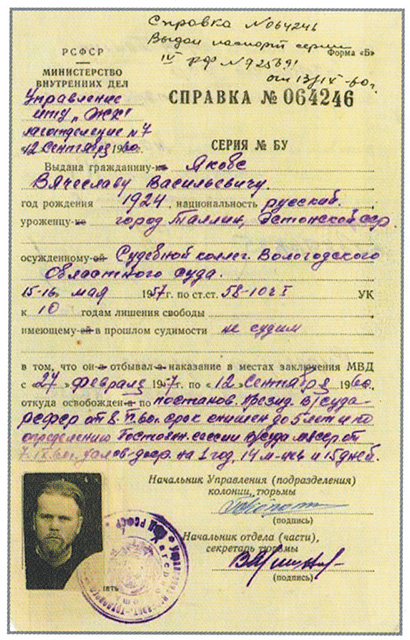 Справка №064246
Выдан паспорт серии
РСФСР
Форма «Б»
IV РФ №925691
МИНИСТЕРСТВО
ВНУТРЕННИХ ДЕЛ
от 13/IX-60г.
Управление
СПРАВКА № 064246
иту „ЖХ"
лаготделение №7
12 Сентября 1960.
СЕРИЯ № БУ
Выдана гражданину-ке Якобс
Вячеславу Васильевичу.
год рождения 1924, национальность русской.
уроженцу-ке город Таллин, Эстонской сср.
осужденному-ой Судебной коллег. Вологодского
Областного суда.
15-16 мая 1957г. по ст.ст. 58-10 ч I УК
к 10 годам лишения свободы
имеющему-ей в прошлом судимости не судим
в том, что он-а отбывал-а наказание в местах заключения МВД
с „27" февраля 1957г. по „12 Сентября 1960.
откуда освобожден-а по постанов. Презид. В/суда-
РСФСР от 8.II.60г. срок снижен до 5 лет и по
определению сессии В/суда МАССР от
7.IX.60г. услов-доср. на 1 год, 14 и 15 дней.
Начальник Управления (подразделения)
колонии, тюрьмы
(подпись)
Начальник отдела (части),
секретарь тюрьмы
(подпись)